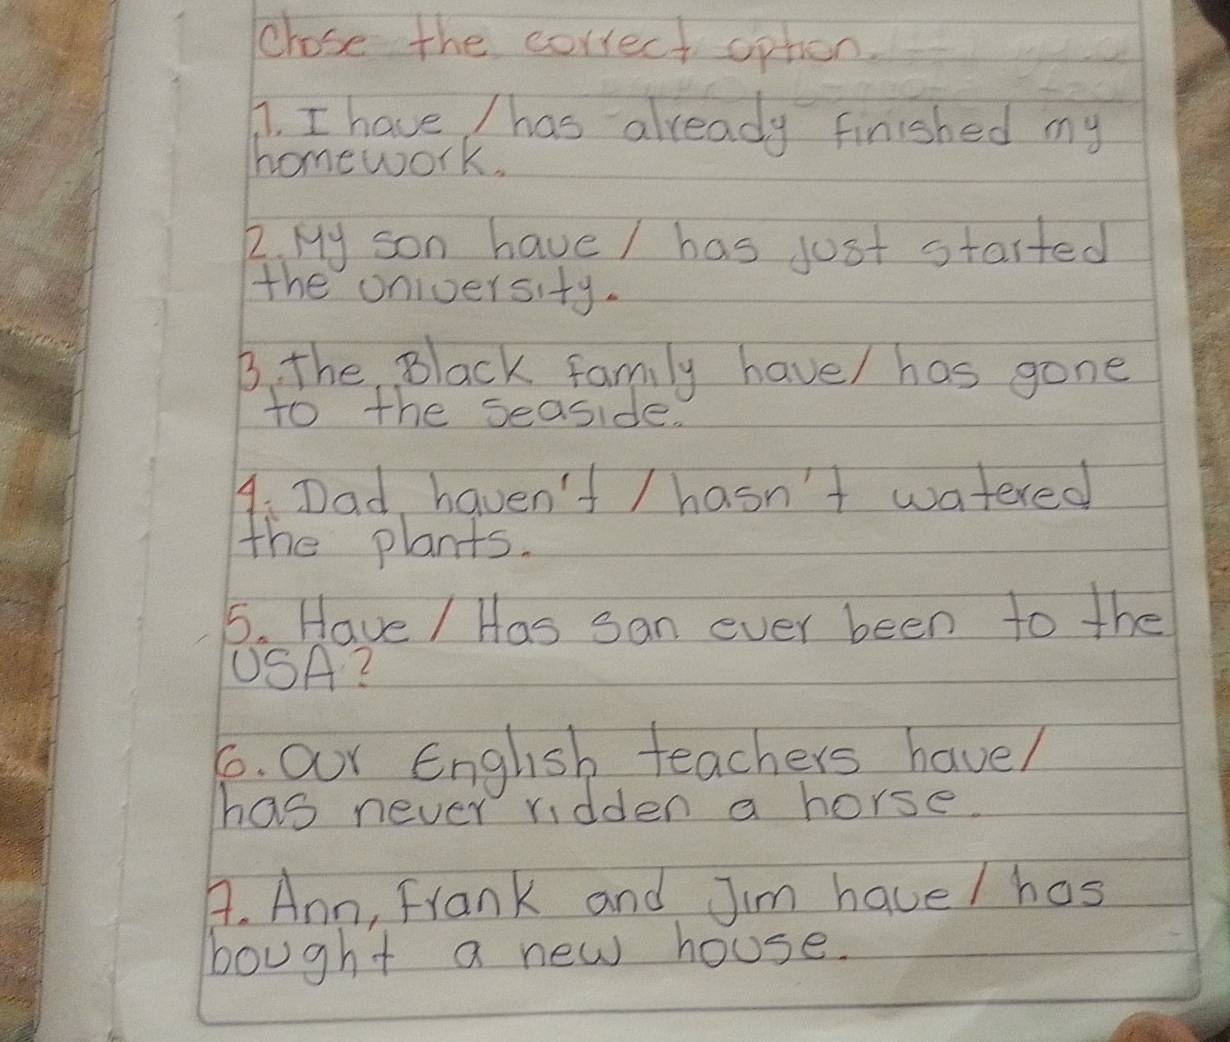 Chose the correct option.
1. I have / has already finished my
homework.
2. My son have / has just started
the university.
3. The Black family have / has gone
to the seaside.
4. Dad haven't / hasn't watered
the plants.
5. Have / Has san ever been to the
USA?
6. Our English teachers have /
has never ridden a horse.
7. Ann, Frank and Jim have / has
bought a new house.